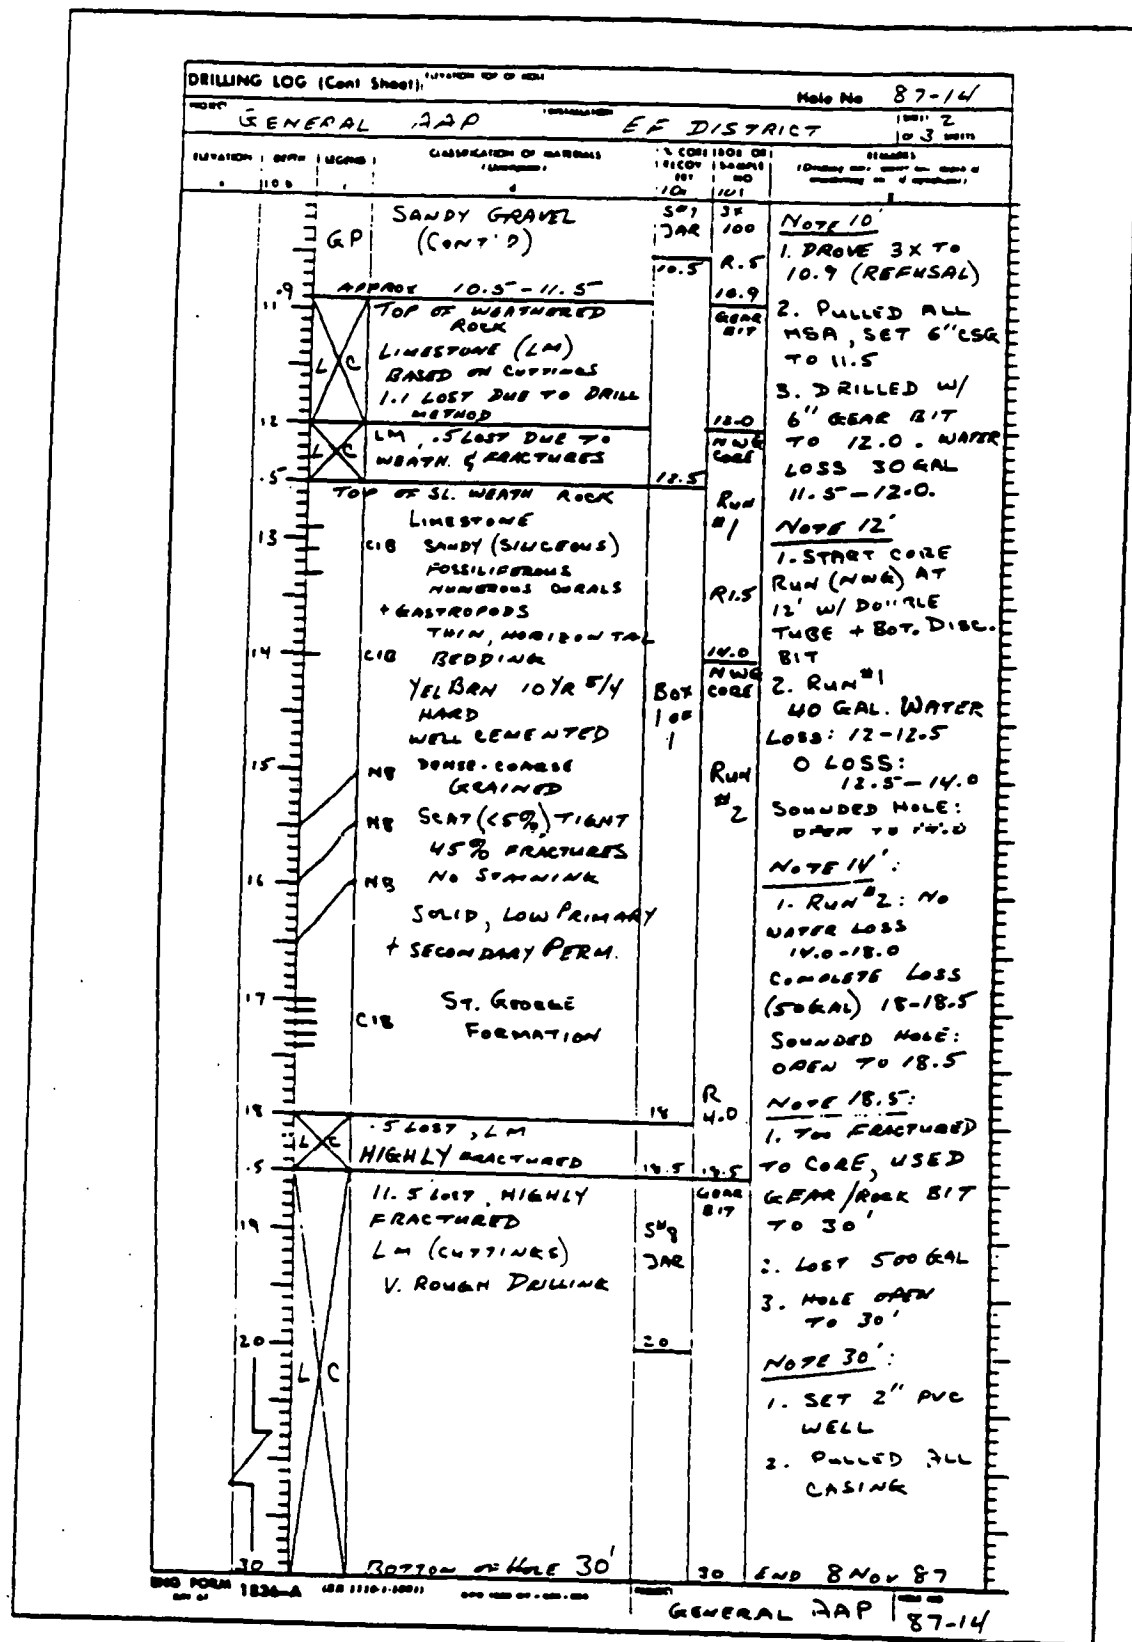 DRILLING LOG (Cont Sheet)
ELEVATION TOP OF HOLE
Hole No 87-14
PROJECT
GENERAL AAP
INSTALLATION
EF DISTRICT
SHEET 2
OF 3 SHEETS
ELEVATION
DEPTH
LEGEND
CLASSIFICATION OF MATERIALS
% CORE RECOV ERY
BOX OR SAMPLE NO
REMARKS
SANDY GRAVEL
(CONT'D)
GP
S#7
JAR
3X
100
10.5
R.5
.9
APPROX 10.5-11.5
10.9
11
TOP OF WEATHERED
ROCK
GEAR
BIT
LIMESTONE (LM)
BASED ON CUTTINGS
1.1 LOST DUE TO DRILL
METHOD
L C
12
12.0
LM, .5 LOST DUE TO
WEATH. & FRACTURES
L C
NWG
CORE
.5
12.5
TOP OF SL. WEATH ROCK
LIMESTONE
Run
#1
13
CIB SANDY (SILICEOUS)
FOSSILIFEROUS
NUMEROUS CORALS
+ GASTROPODS
R1.5
THIN, HORIZONTAL
14
CIB BEDDING
14.0
NWG
CORE
YEL BRN 10YR 5/4
HARD
WELL CEMENTED
BOX
1 OF
1
15
NB DENSE-COARSE
GRAINED
Run
#2
NB SCAT (<5%) TIGHT
45% FRACTURES
16
NB NO STAINING
SOLID, LOW PRIMARY
+ SECONDARY PERM.
17
CIB
ST. GEORGE
FORMATION
R
4.0
18
18
.5 LOST, LM
HIGHLY FRACTURED
L C
.5
18.5 18.5
11.5 LOST, HIGHLY
FRACTURED
GEAR
BIT
19
LM (CUTTINGS)
V. ROUGH DRILLING
S#8
JAR
20
20
L C
30
BOTTOM OF HOLE 30'
30
NOTE 10'
1. DROVE 3X TO
10.9 (REFUSAL)
2. PULLED ALL
HSA, SET 6" CSG
TO 11.5
3. DRILLED W/
6" GEAR BIT
TO 12.0. WATER
LOSS 30 GAL
11.5-12.0.
NOTE 12'
1. START CORE
RUN (NWG) AT
12' W/ DOUBLE
TUBE + BOT. DISC.
BIT
2. RUN #1
40 GAL. WATER
LOSS: 12-12.5
0 LOSS:
12.5-14.0
SOUNDED HOLE:
OPEN TO 14.0
NOTE 14':
1. RUN #2: NO
WATER LOSS
14.0-18.0
COMPLETE LOSS
(50 GAL) 18-18.5
SOUNDED HOLE:
OPEN TO 18.5
NOTE 18.5:
1. TOO FRACTURED
TO CORE, USED
GEAR/ROCK BIT
TO 30'
2. LOST 500 GAL
3. HOLE OPEN
TO 30'
NOTE 30':
1. SET 2" PVC
WELL
2. PULLED ALL
CASING
END 8 NOV 87
ENG FORM 1836-A
PROJECT
GENERAL AAP
HOLE NO
87-14